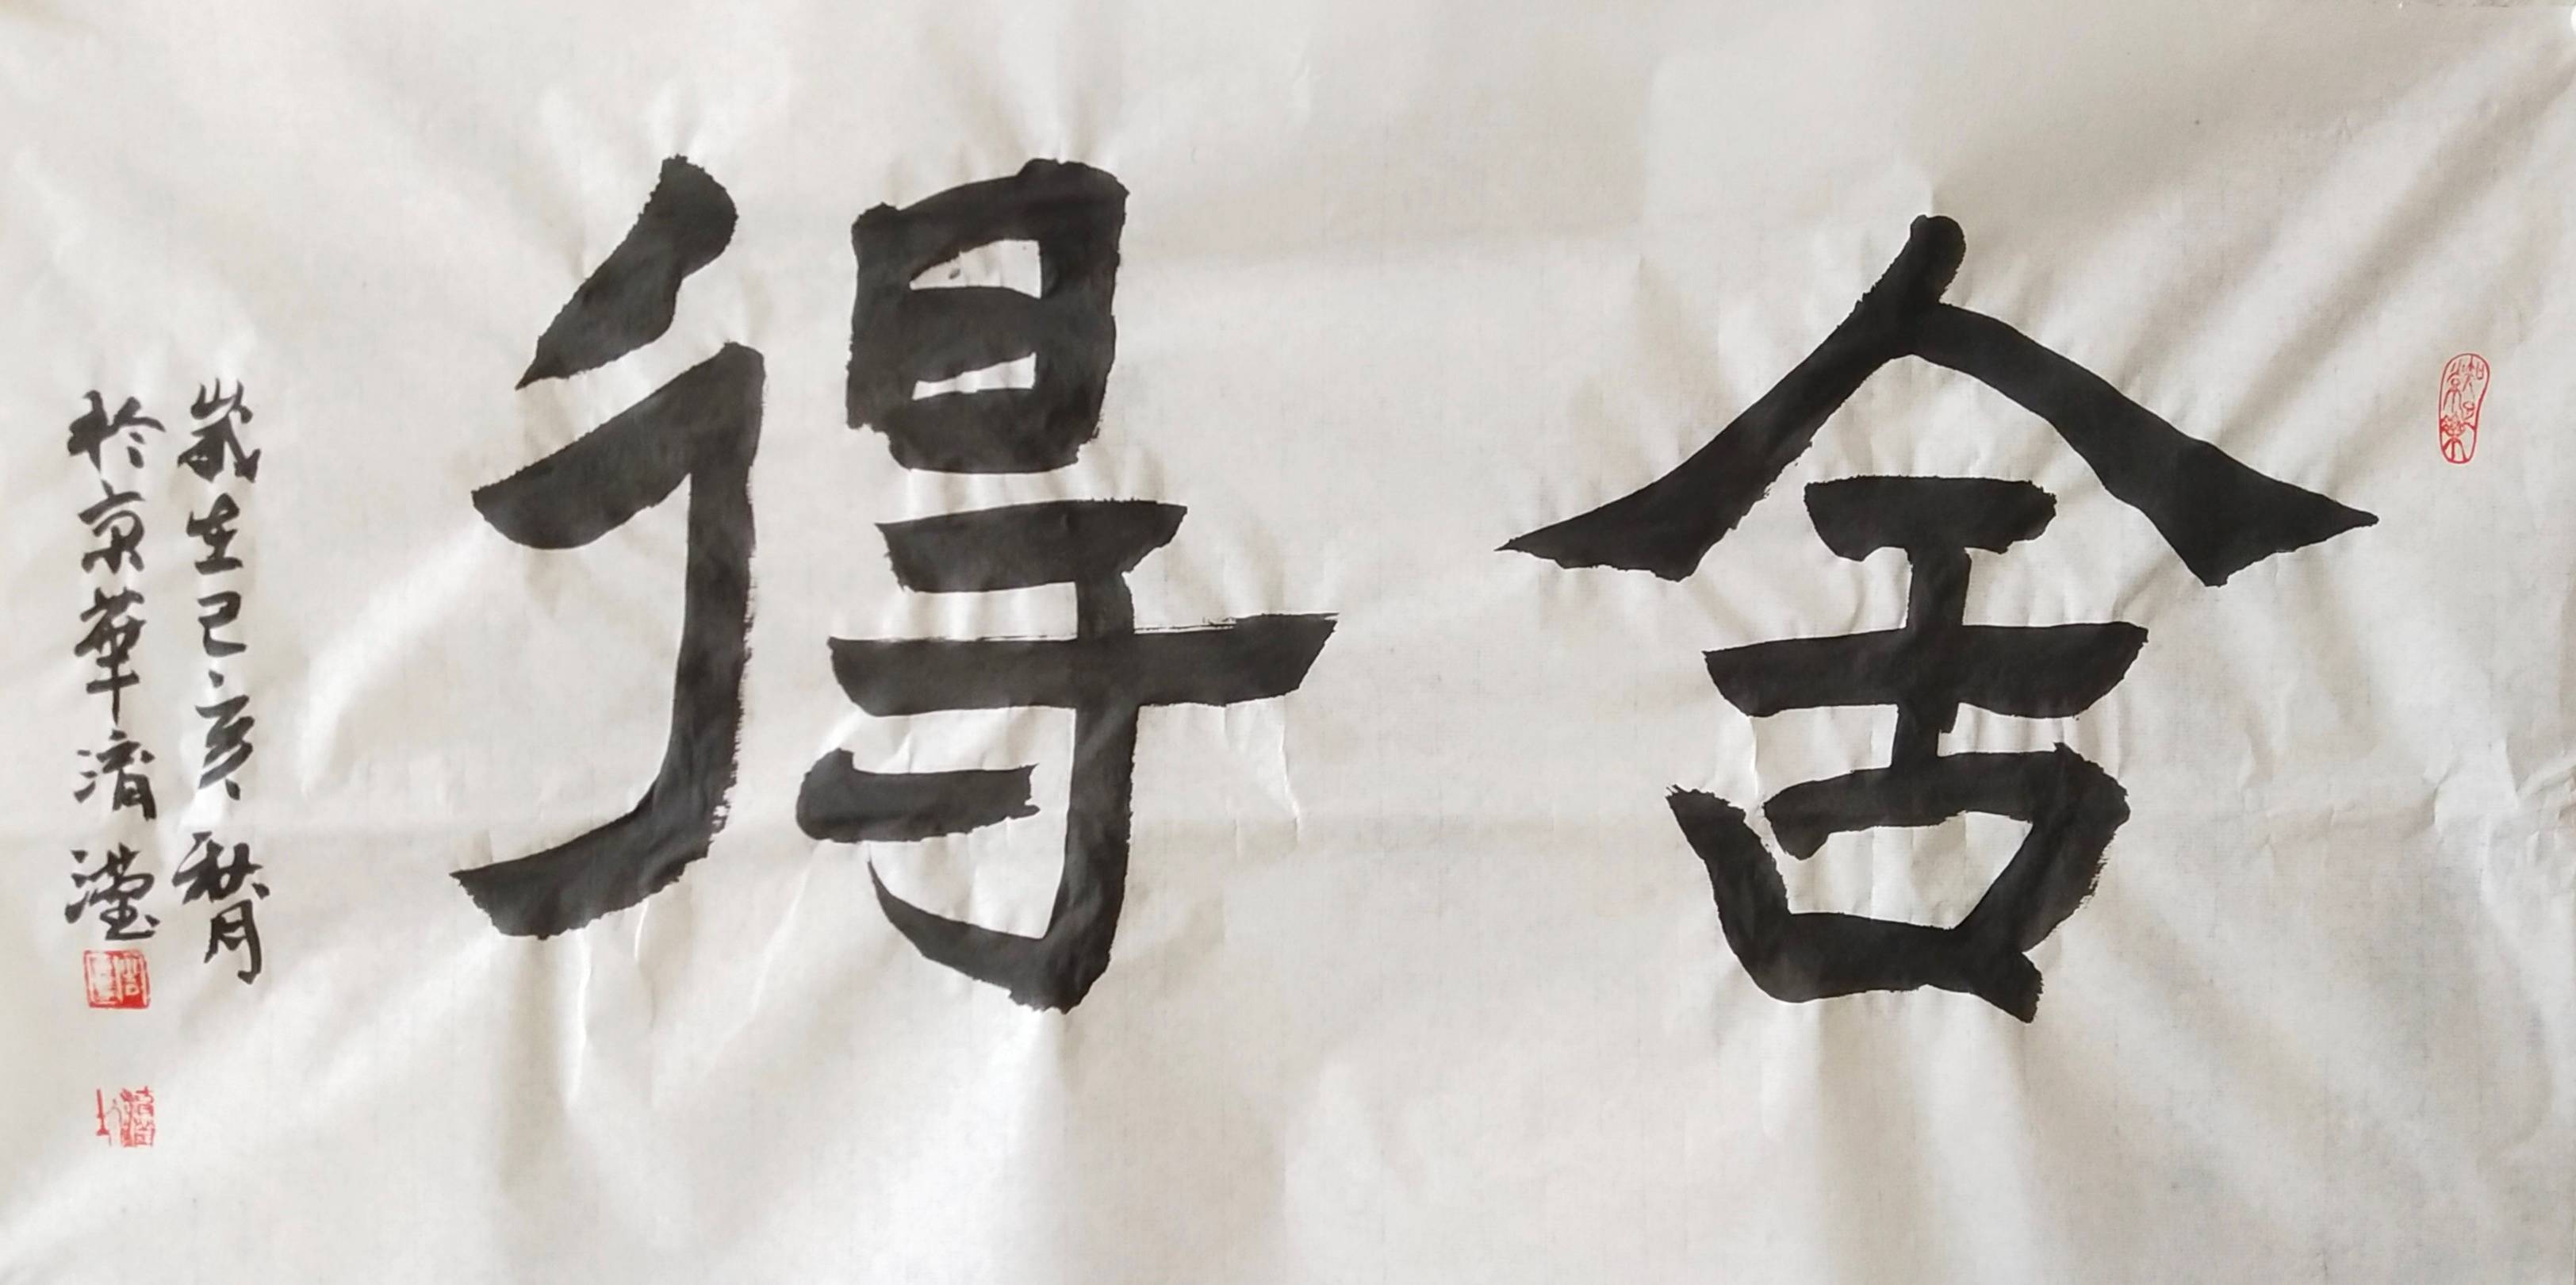 舍得
歲在己亥秋月
於京華濟瀅